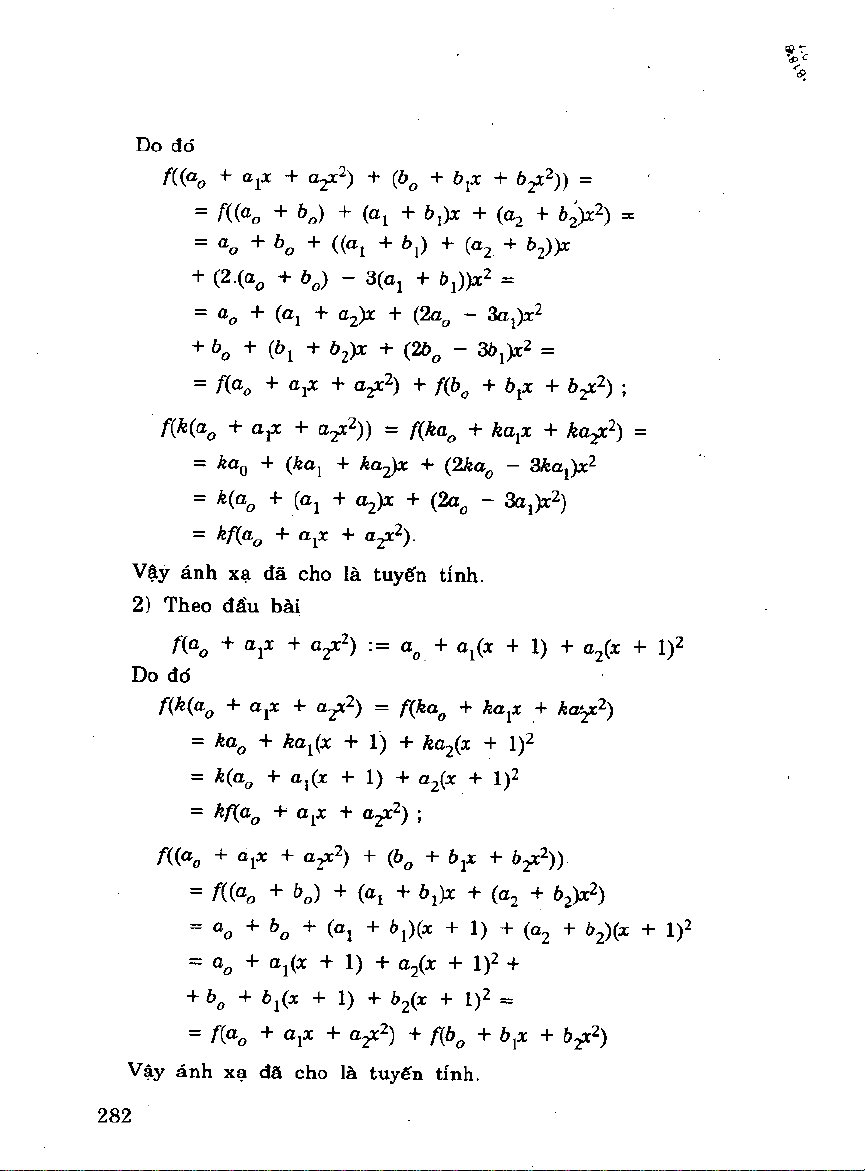 Do đó
f((a₀ + a₁x + a₂x²) + (b₀ + b₁x + b₂x²)) =
= f((a₀ + b₀) + (a₁ + b₁)x + (a₂ + b₂)x²) =
= a₀ + b₀ + ((a₁ + b₁) + (a₂ + b₂))x
+ (2.(a₀ + b₀) − 3(a₁ + b₁))x² =
= a₀ + (a₁ + a₂)x + (2a₀ − 3a₁)x²
+ b₀ + (b₁ + b₂)x + (2b₀ − 3b₁)x² =
= f(a₀ + a₁x + a₂x²) + f(b₀ + b₁x + b₂x²) ;
f(k(a₀ + a₁x + a₂x²)) = f(ka₀ + ka₁x + ka₂x²) =
= ka₀ + (ka₁ + ka₂)x + (2ka₀ − 3ka₁)x²
= k(a₀ + (a₁ + a₂)x + (2a₀ − 3a₁)x²)
= kf(a₀ + a₁x + a₂x²).
Vậy ánh xạ đã cho là tuyến tính.
2) Theo đầu bài
f(a₀ + a₁x + a₂x²) := a₀ + a₁(x + 1) + a₂(x + 1)²
Do đó
f(k(a₀ + a₁x + a₂x²) = f(ka₀ + ka₁x + ka₂x²)
= ka₀ + ka₁(x + 1) + ka₂(x + 1)²
= k(a₀ + a₁(x + 1) + a₂(x + 1)²
= kf(a₀ + a₁x + a₂x²) ;
f((a₀ + a₁x + a₂x²) + (b₀ + b₁x + b₂x²))
= f((a₀ + b₀) + (a₁ + b₁)x + (a₂ + b₂)x²)
= a₀ + b₀ + (a₁ + b₁)(x + 1) + (a₂ + b₂)(x + 1)²
= a₀ + a₁(x + 1) + a₂(x + 1)² +
+ b₀ + b₁(x + 1) + b₂(x + 1)² =
= f(a₀ + a₁x + a₂x²) + f(b₀ + b₁x + b₂x²)
Vậy ánh xạ đã cho là tuyến tính.
282